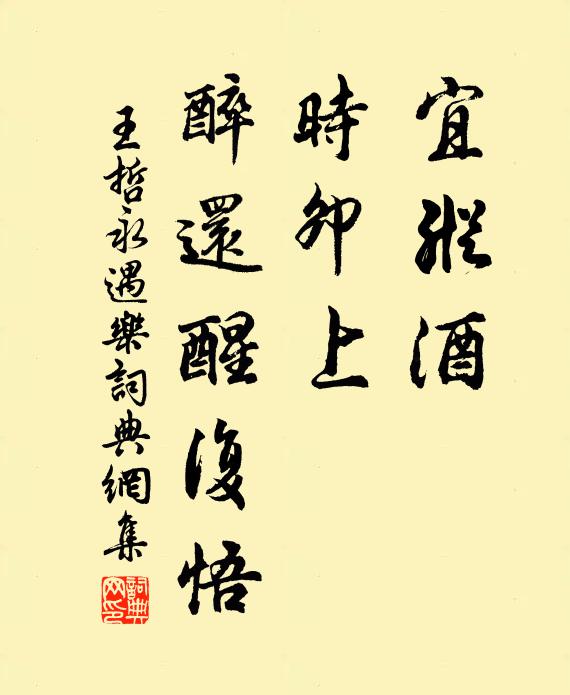 宜縱酒
時卯上
醉還醒復悟
王哲永遇樂詞典網集
詞典网印